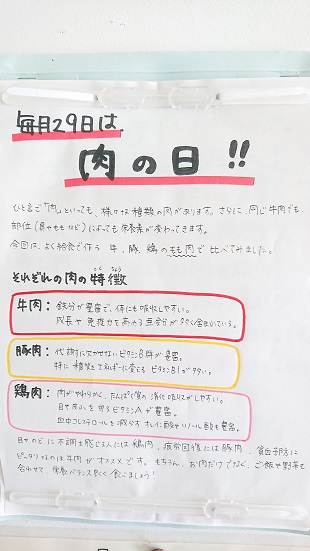 毎月29日は、
肉の日!!
ひと言で「肉」といっても、様々な種類の肉があります。さらに、同じ牛肉でも、
部位(肩やももなど)によっても栄養素が変わってきます。
今回は、よく給食で作う 牛、豚、鶏のもも肉で 比べてみました。
それぞれの肉の特徴
とくちょう
牛肉: 鉄分が豊富で、体にも吸収しやすい。
成長や免疫力を高める亜鉛が多く含まれている。
豚肉: 代謝に欠かせないビタミンB群が豊富。
特に糖質をエネルギーに変えるビタミンB1が多い。
鶏肉: 肉がやわらかく、たんぱく質の消化吸収がしやすい。
目や皮ふを守るビタミンAが豊富。
血中コレステロールを減らすオレイン酸やリノール酸も豊富。
目やのどに不調を感じる人には鶏肉、疲労回復には豚肉、貧血予防に
ピッタリなのは牛肉がオススメです。もちろん、お肉だけでなく、ご飯や野菜も
合わせて、栄養バランスよく食べましょう!